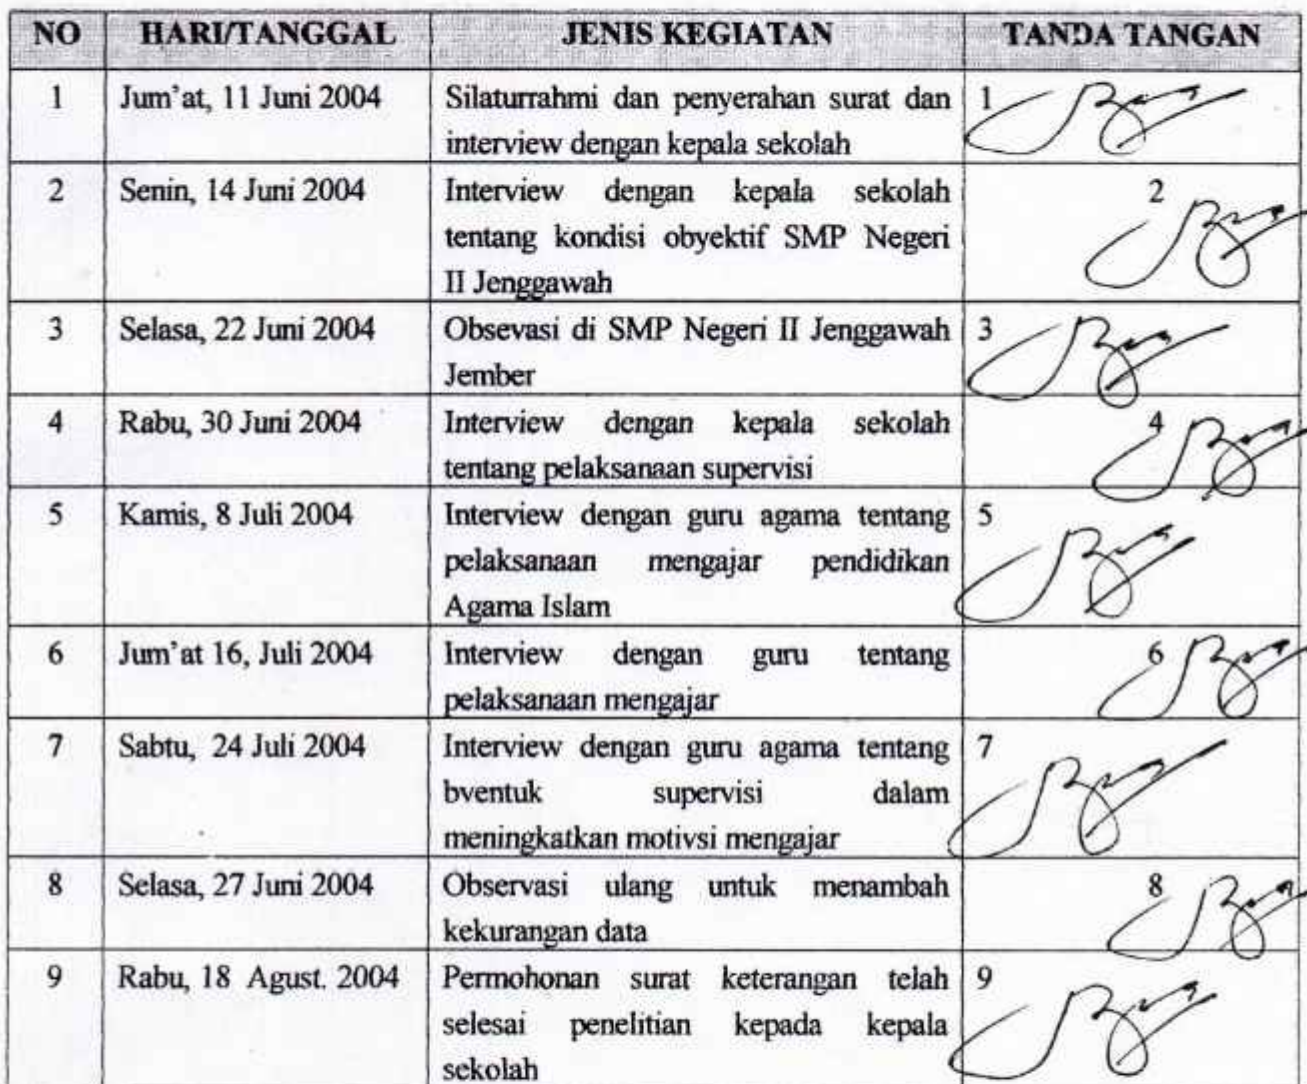 NO HARI/TANGGAL JENIS KEGIATAN TANDA TANGAN
1 Jum'at, 11 Juni 2004 Silaturrahmi dan penyerahan surat dan 1
interview dengan kepala sekolah
2 Senin, 14 Juni 2004 Interview dengan kepala sekolah 2
tentang kondisi obyektif SMP Negeri
II Jenggawah
3 Selasa, 22 Juni 2004 Obsevasi di SMP Negeri II Jenggawah 3
Jember
4 Rabu, 30 Juni 2004 Interview dengan kepala sekolah 4
tentang pelaksanaan supervisi
5 Kamis, 8 Juli 2004 Interview dengan guru agama tentang 5
pelaksanaan mengajar pendidikan
Agama Islam
6 Jum'at 16, Juli 2004 Interview dengan guru tentang 6
pelaksanaan mengajar
7 Sabtu, 24 Juli 2004 Interview dengan guru agama tentang 7
bventuk supervisi dalam
meningkatkan motivsi mengajar
8 Selasa, 27 Juni 2004 Observasi ulang untuk menambah 8
kekurangan data
9 Rabu, 18 Agust. 2004 Permohonan surat keterangan telah 9
selesai penelitian kepada kepala
sekolah